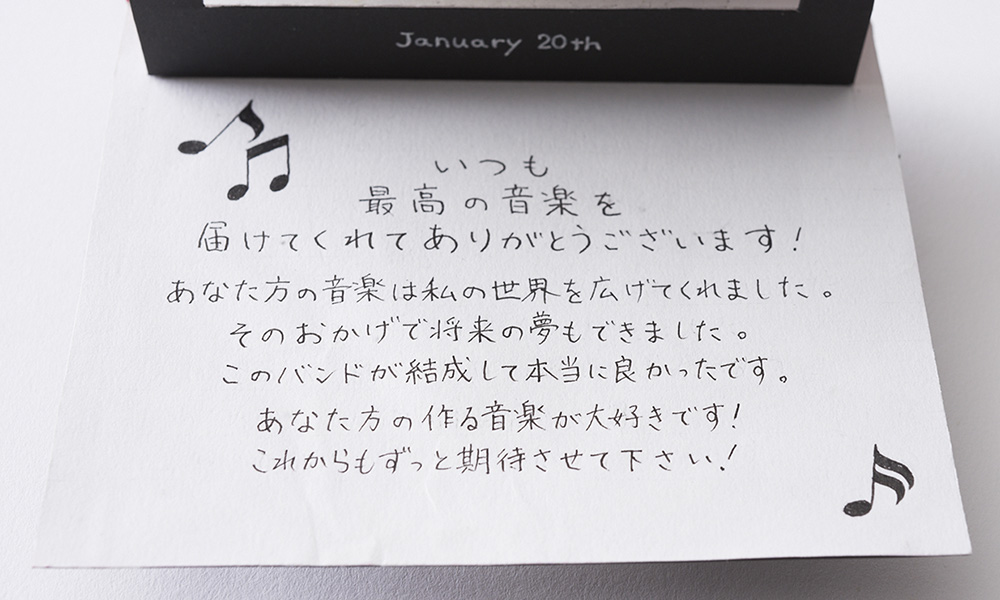 January 20th
いつも
最高の音楽を
届けてくれてありがとうございます!
あなた方の音楽は私の世界を広げてくれました。
そのおかげで将来の夢もできました。
このバンドが結成して本当に良かったです。
あなた方の作る音楽が大好きです!
これからもずっと期待させて下さい!